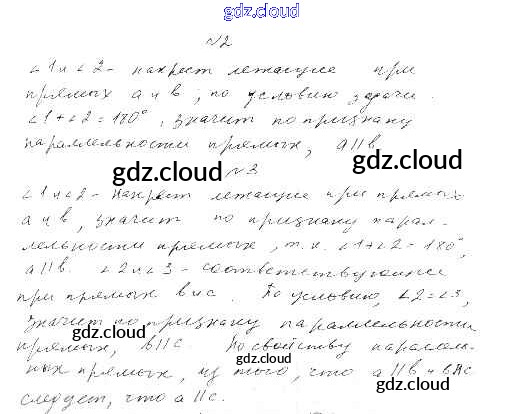 gdz.cloud
№2
∠1 и ∠2 - накрест лежащие при
прямых a и b, по условию задачи.
∠1+∠2=180°, значит по признаку
параллельности прямых, a||b
gdz.cloud
gdz.cloud
№3
∠1 и ∠2 - накрест лежащие при прямых
a и b, значит по признаку парал-
лельности прямых, т.к. ∠1+∠2=180°,
a||b. ∠2 и ∠3 - соответствующие
при прямых b и c. По условию, ∠2=∠3,
значит по признаку параллельности
прямых, b||c. По свойству параллель-
ных прямых, из того, что a||b и b||c
следует, что a||c.
gdz.cloud
gdz.cloud
gdz.cloud
gdz.cloud